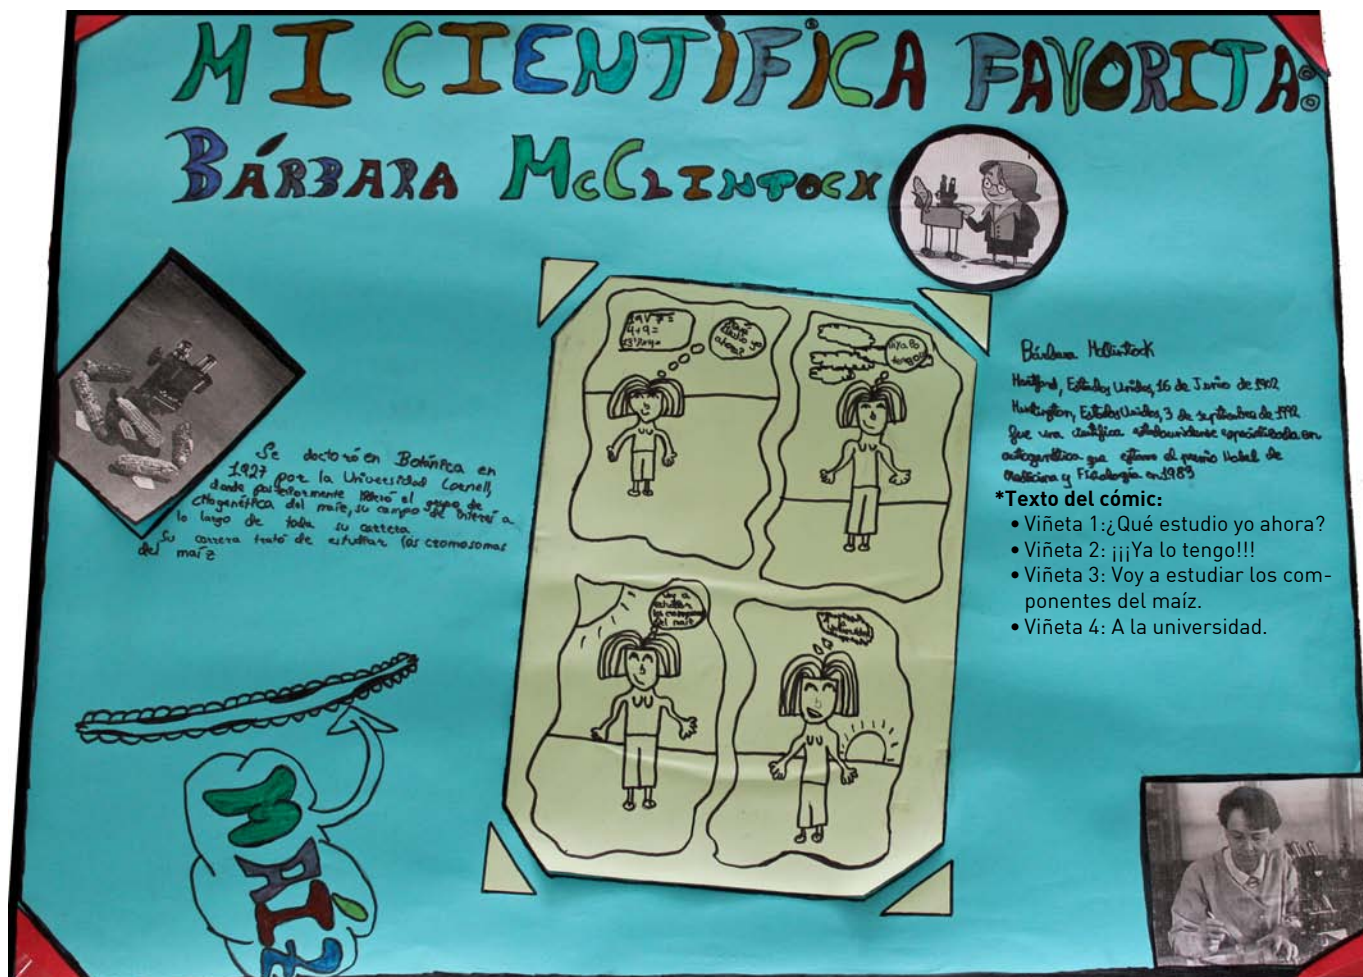 MI CIENTÌFICA FAVORITA:
BÁRBARA McCLINTOCK
Se doctoró en Botánica en
1927 por la Universidad Cornell,
donde posteriormente lideró el grupo de
citogenética del maíz, su campo de interés a
lo largo de toda su carrera
Su carrera trató de estudiar los cromosomas
del maíz
MAÍZ
4+9=
¿Qué
estudio yo
ahora?
¡¡¡Ya lo
tengo!!!
Voy a
estudiar
del maíz
universidad
Bárbara
Hartford, Estados Unidos, 16 de Junio de 1902
Huntington, Estados Unidos, 3 de septiembre de 1992
fue una científica estadounidense especializada en
que el premio Nobel de
Medicina y Fisiología en 1983
*Texto del cómic:
• Viñeta 1:¿Qué estudio yo ahora?
• Viñeta 2: ¡¡¡Ya lo tengo!!!
• Viñeta 3: Voy a estudiar los com-
ponentes del maíz.
• Viñeta 4: A la universidad.